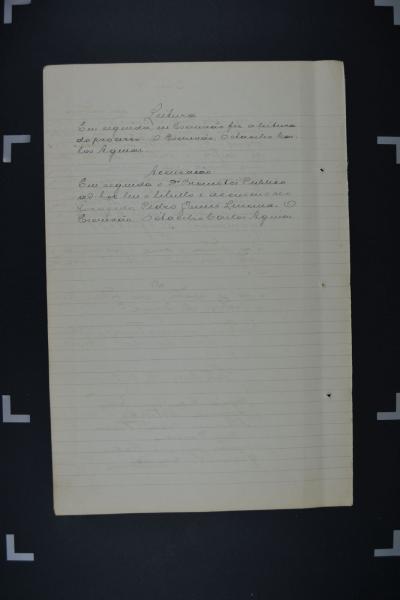 Leitura
Em seguida, eu Escrivão fiz a leitura
do processo. O Escrivão, Octacilio Car-
los Aguiar.
Accusação
Em seguida o Dr Promotor Publico
ad-hoc leu o libello e accusou o réo
Pedro O
Escrivão Octacilio Carlos Aguiar